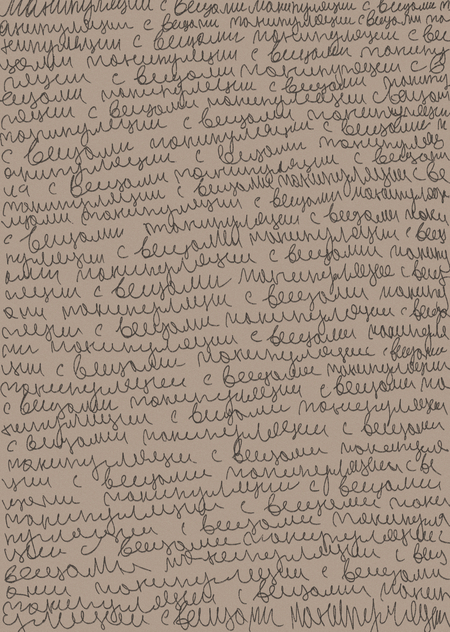 Манипуляции с вещами манипуляции с вещами м
анипуляции с вещами манипуляции с вещами ма
нипуляции с вещами манипуляции с ве
щами манипуляции с вещами манипу
ляции с вещами манипуляции с в
ещами манипуляции с вещами манипу
ляции с вещами манипуляции с вещами
манипуляции с вещами манипуляции
с вещами манипуляции с вещами м
анипуляции с вещами манипуляц
ия с вещами манипуляции с вещами
манипуляции с вещами манипуляции с ве
щами манипуляции с вещами манипуляции
с вещами манипуляции с вещами мани
пуляции с вещами манипуляции с вещ
ами манипуляции с вещами манипу
ляции с вещами манипуляции с вещ
ами манипуляции с вещами манипу
ляции с вещами манипуляции с веща
ми манипуляции с вещами манипуля
ции с вещами манипуляции с вещами
манипуляции с вещами манипуляции
с вещами манипуляции с вещами ма
нипуляции с вещами манипуляции
с вещами манипуляции с вещами
манипуляции с вещами манипуля
ции с вещами манипуляции с в
ещами манипуляции с вещами
манипуляции с вещами мани
пуляции с вещами манипуля
ции с вещами манипуляции с
вещами манипуляции с вещ
ами манипуляции с вещами
манипуляции с вещами манип
уляции с вещами манипуляции